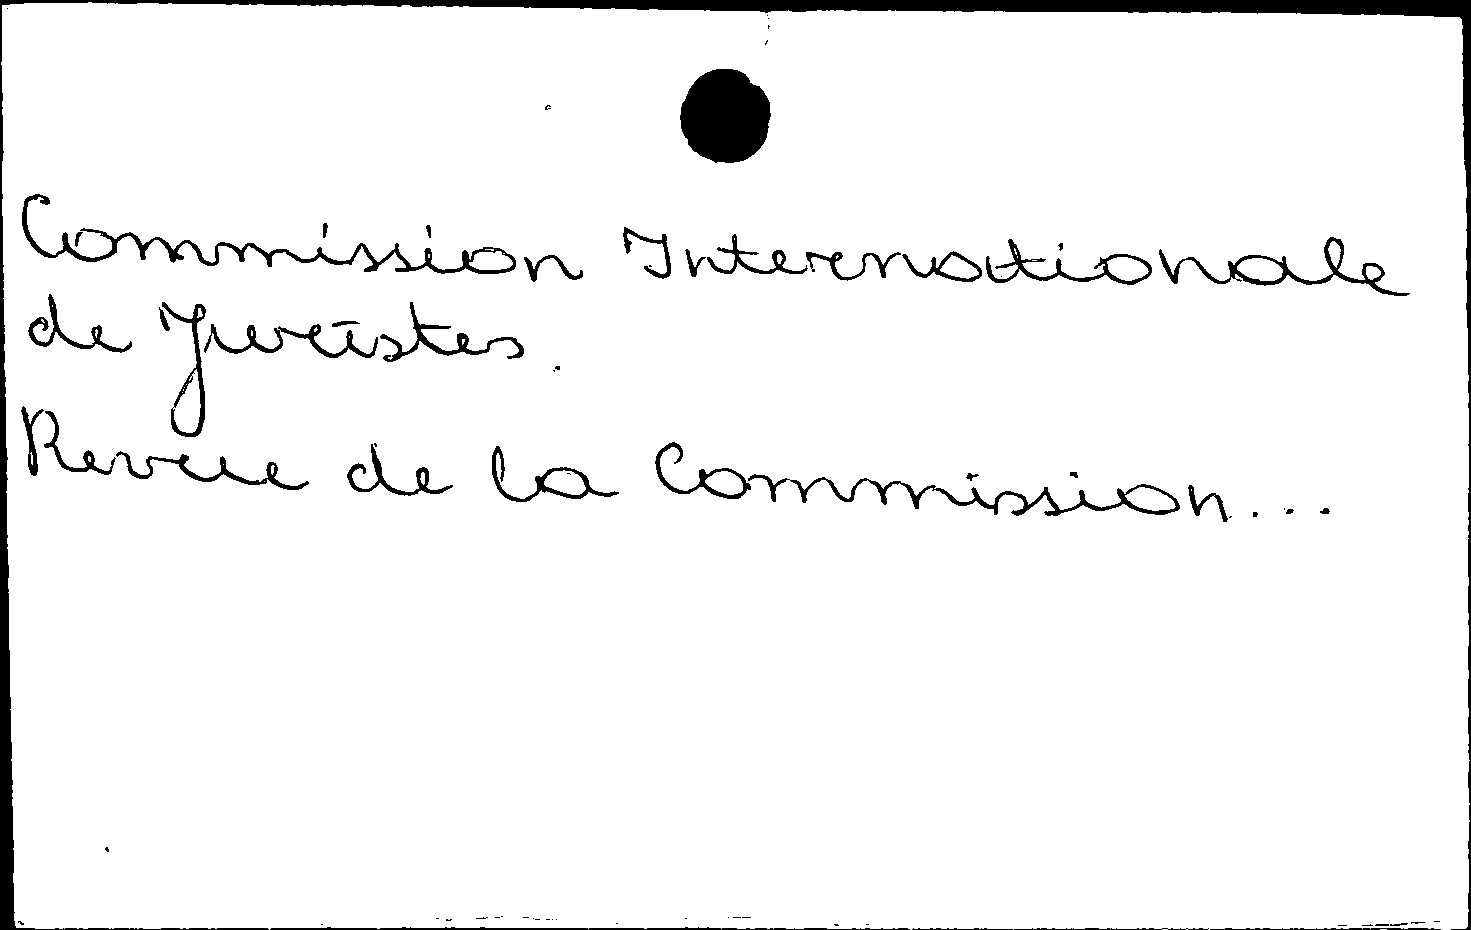 Commission Internationale
de Juristes.
Revue de la Commission...